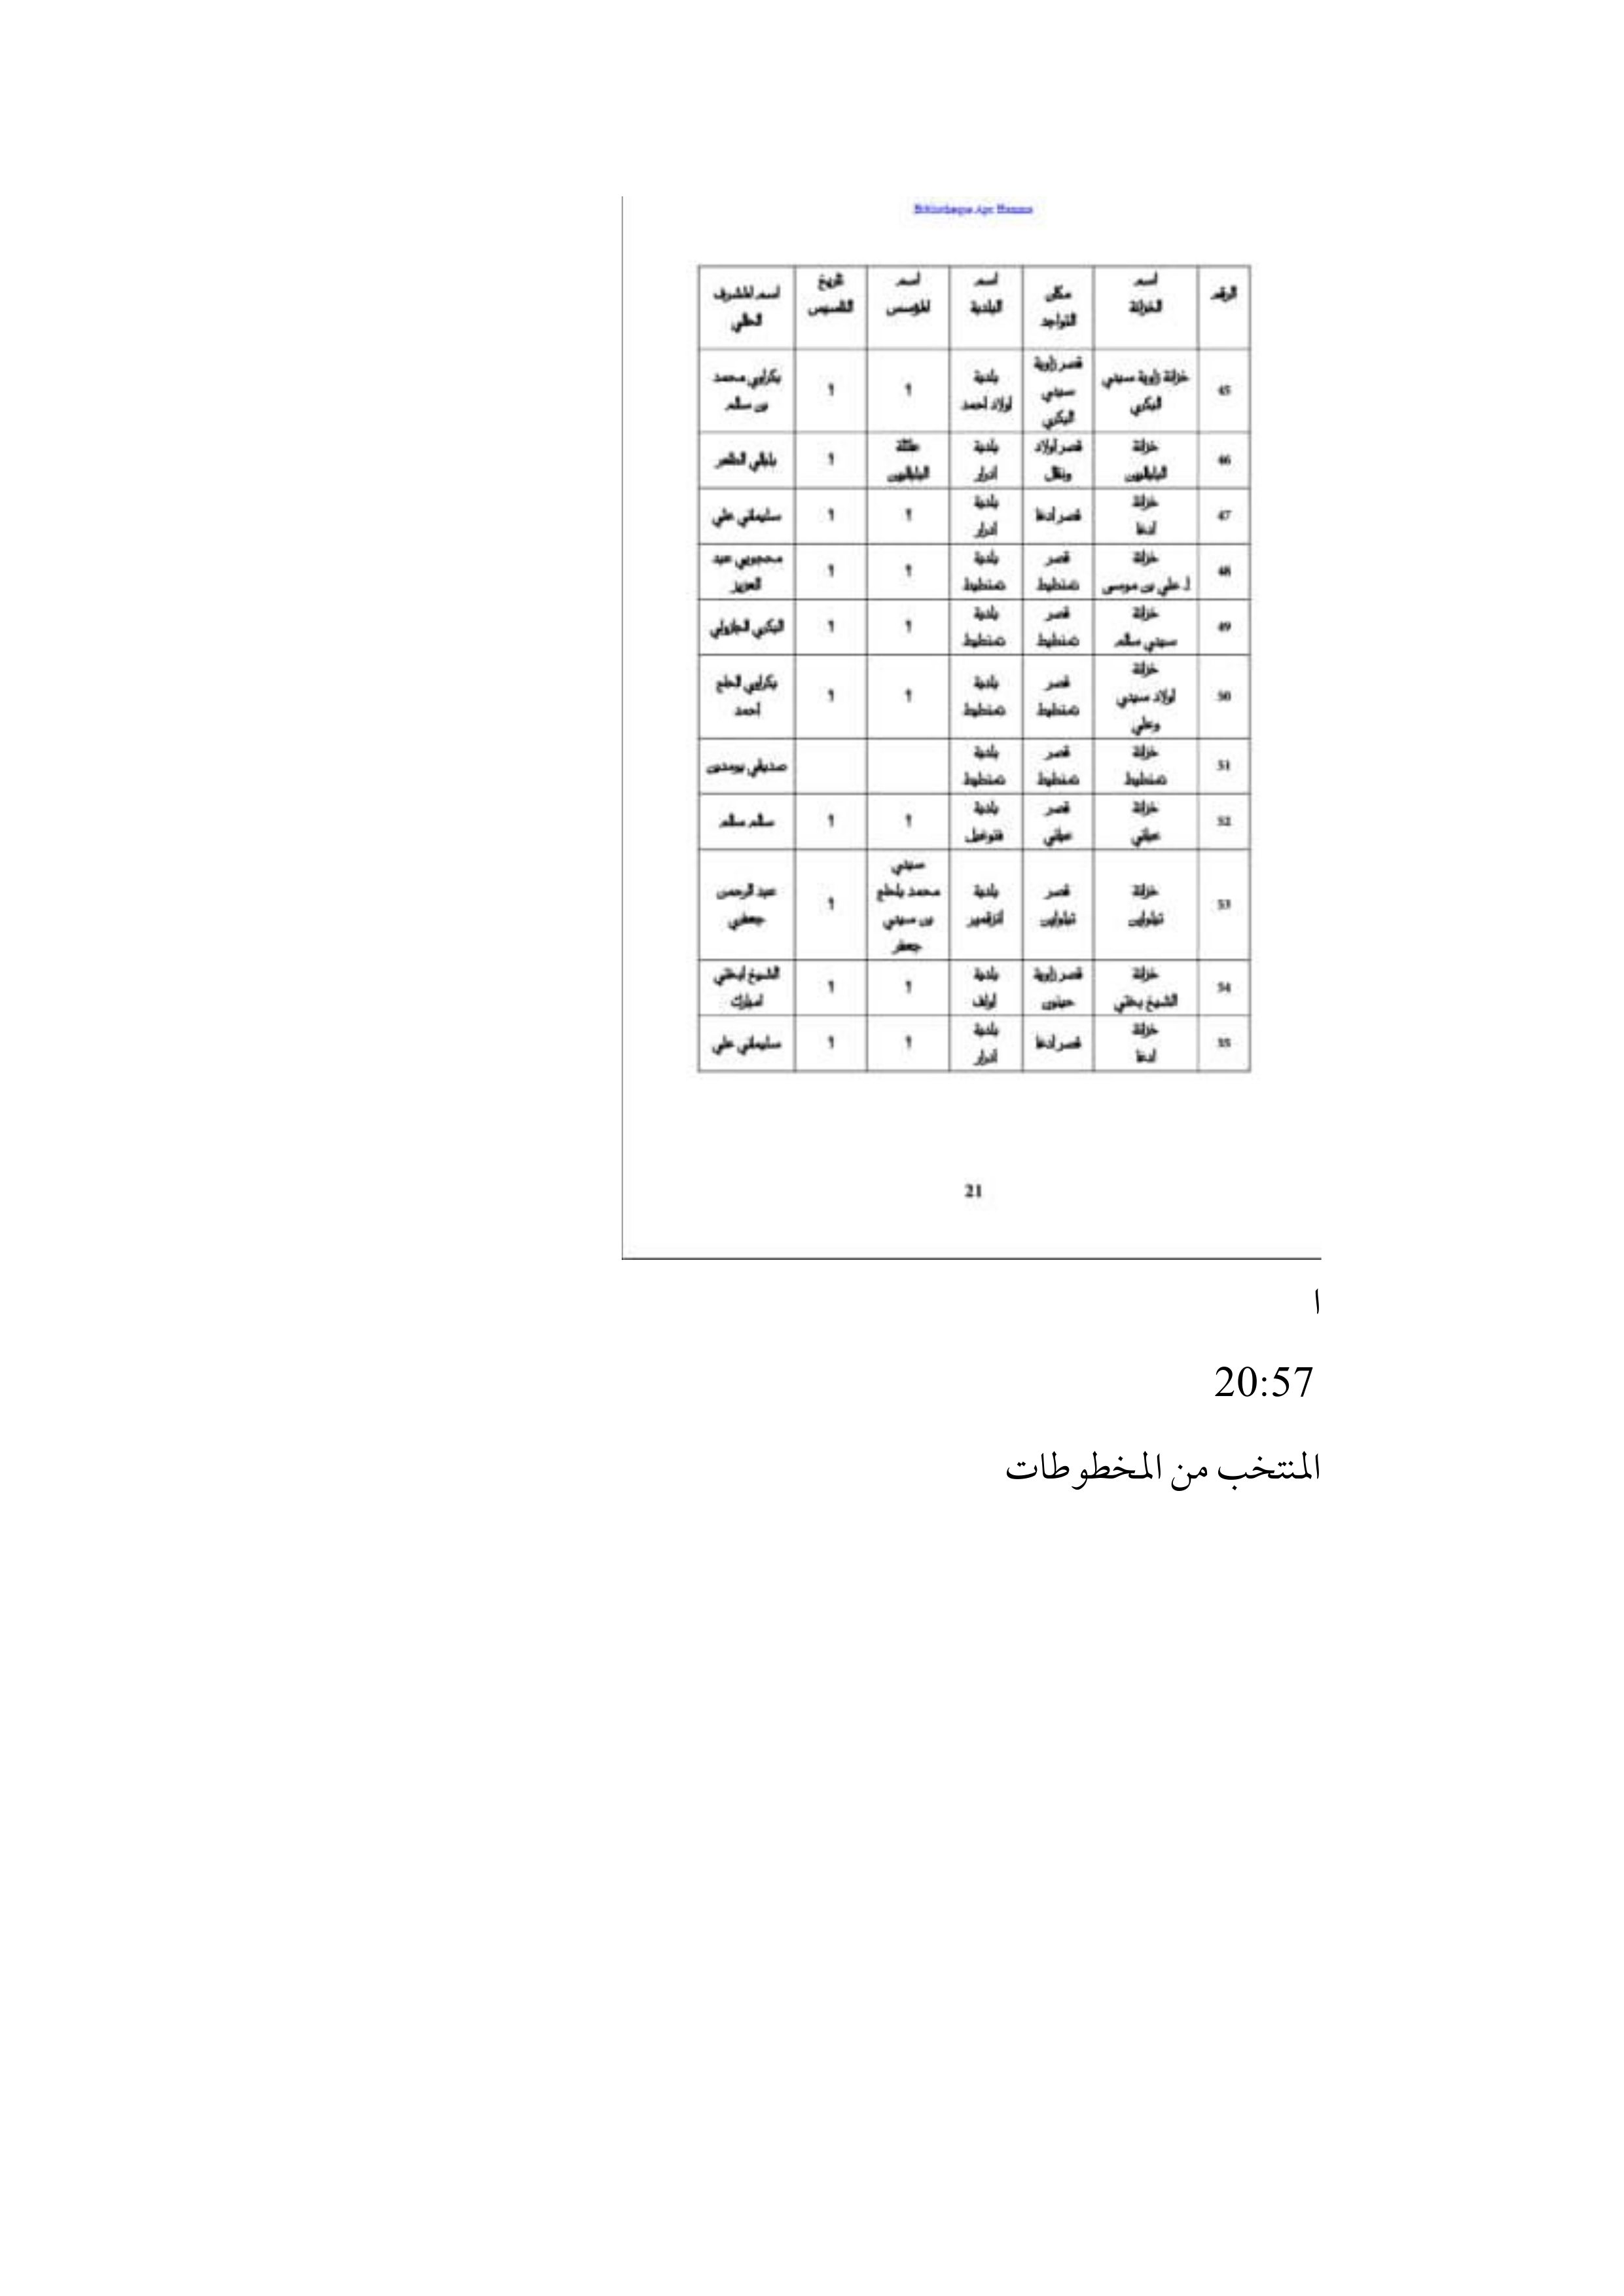 الرقم اسم الخزانة مكان التواجد اسم البلدية اسم المؤسس تاريخ التأسيس اسم المشرف الحالي
45 خزانة زاوية سيدي البكري قصر زاوية سيدي البكري بلدية اولاد أحمد ؟ ؟ بكراوي محمد بن سالم
46 خزانة البلباليين قصر أولاد ونقال بلدية أدرار عائلة البلباليين ؟ بلبالي الطاهر
47 خزانة أدغا قصر أدغا بلدية أدرار ؟ ؟ سليماني علي
48 خزانة أ. علي بن موسى قصر تمنطيط بلدية تمنطيط ؟ ؟ محجوبي عبد العزيز
49 خزانة سيدي سالم قصر تمنطيط بلدية تمنطيط ؟ ؟ البكري الجازولي
50 خزانة أولاد سيدي وعلي قصر تمنطيط بلدية تمنطيط ؟ ؟ بكراوي الحاج أحمد
51 خزانة تمنطيط قصر تمنطيط بلدية تمنطيط صديقي بومدين
52 خزانة عباني قصر عباني بلدية فنوغيل ؟ ؟ سالم سالم
53 خزانة تيلولين قصر تيلولين بلدية أنزقمير سيدي محمد بلحاج بن سيدي جعفر ؟ عبد الرحمن جعفري
54 خزانة الشيخ بختي قصر زاوية حينون بلدية أولف ؟ ؟ الشيخ لبختي امبارك
55 خزانة أدغا قصر أدغا بلدية أدرار ؟ ؟ سليماني علي
21
ا
20:57
المنتخب من المخطوطات